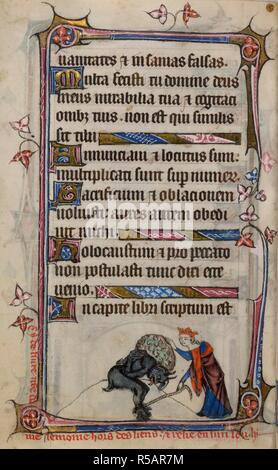 vanitates & insanias falsas.
Multa fecisti tu domine deus
meus mirabilia tua & cogitaci
omb; tuis. non est qui similis
sit tibi.
Annunciavi & locutus sum:
multiplicati sunt sup numer
Sacrificium & oblacionem
noluisti: aures autem
michi.
Holocaustum & pro peccato
non postulasti tunc dixi ecce
venio.
In capite libri scriptum est
hors des liens &
R5AR7M